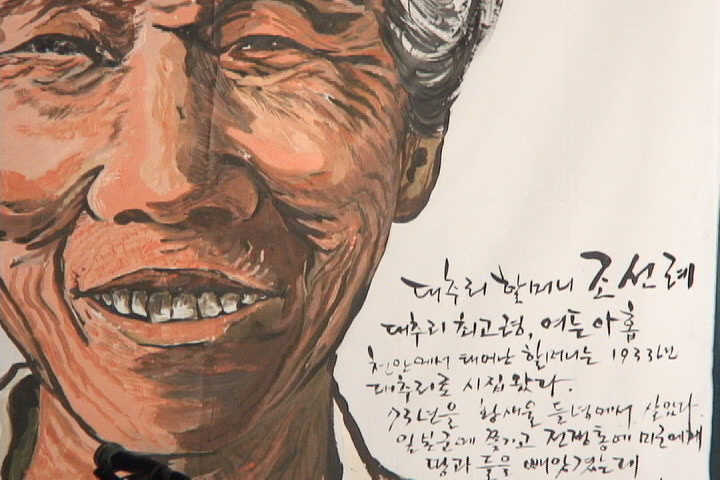 대추리 할머니 조선례
대추리 최고령, 여든아홉
천안에서 태어난 할머니는 1933년
대추리로 시집왔다.
73년을 황새울 들녘에서 살았다.
일본군에 쫓기고 전쟁통에 미군에게
땅과 들을 빼앗겼는데